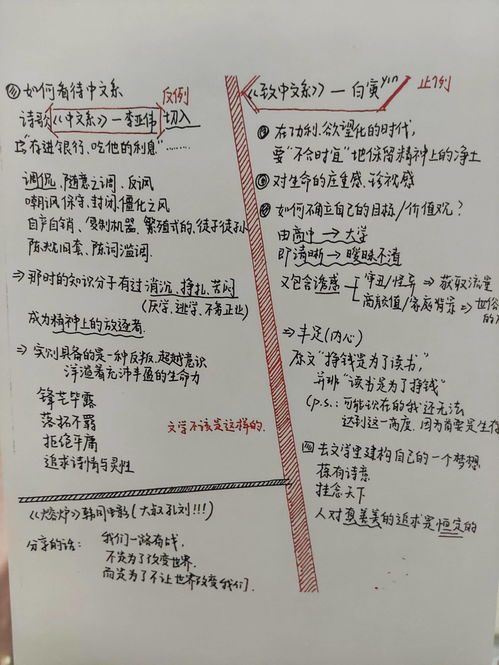 如何看待中文系
反例
诗歌《中文系》—李亚伟 切入
“存进银行、吃他的利息”……
调侃、随意之调、反讽
嘲讽保守、封闭、僵化之风
自产自销、复制机器、繁殖式的、徒子徒孙
陈规旧套、陈词滥调.
⇒ 那时的知识分子有过消沉、挣扎、苦闷
(厌学、逃学、不务正业)
成为精神上的放逐者.
⇒ 实则具备的是一种反叛、超越意识
洋溢着充沛丰盈的生命力
锋芒毕露
落拓不羁
拒绝平庸
追求诗情与灵性
文学不该是这样的.
《熔炉》韩国电影 (大叔孔刘!!!)
分享的话: 我们一路奋战,
不是为了改变世界.
而是为了不让世界改变我们.
《致中文系》— 白寅 yín
正例
在功利、欲望化的时代,
要“不合时宜”地保留精神上的净土
对生命的庄重感、珍视感
如何确立自己的目标/价值观?
由高中 → 大学
即清晰 → 暧昧不清
又包含诱惑
审丑/怪异 ⇒ 获取流量
高颜值/家庭背景 ⇒
⇒ 丰足(内心)
原文“挣钱是为了读书”,
并非“读书是为了挣钱”
(p.s.: 可能现在的我还无法
达到这一高度. 因为首要是生存
去文学里建构自己的一个梦想
拣有诗意
挂念天下
人对真善美的追求是恒定的